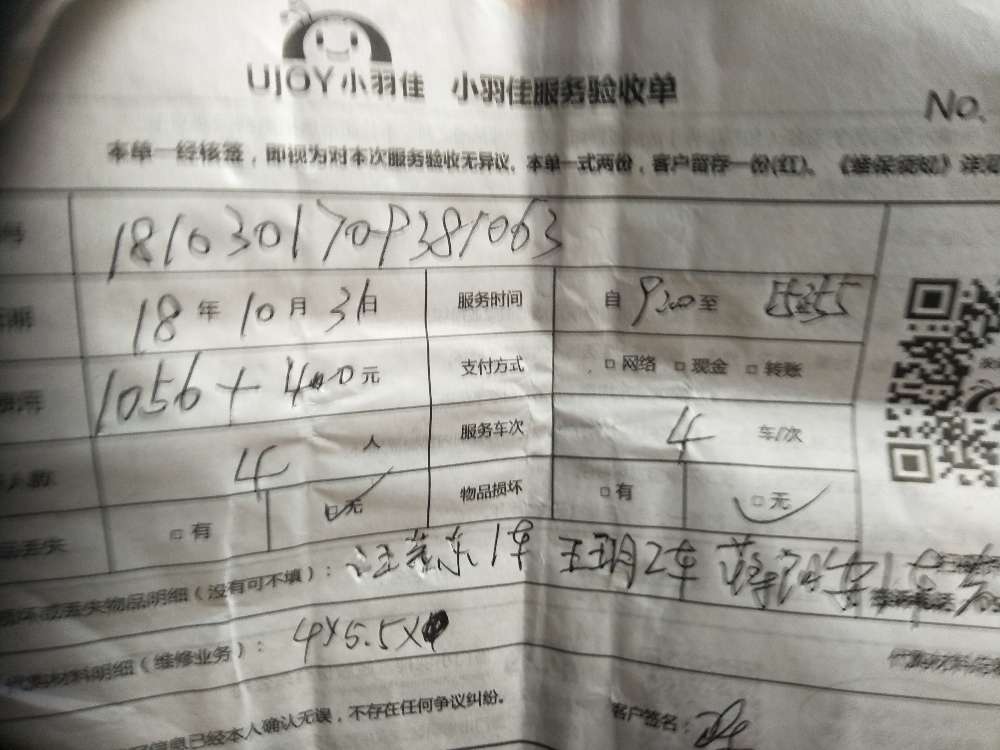 UJOY小羽佳 小羽佳服务验收单
No.
本单一经核签，即视为对本次服务验收无异议。本单一式两份，客户留存一份(红)。《维保须知》详见
1810301709381063
18年10月31日 服务时间 自9:00至
1056+400元 支付方式 □网络 □现金 □转账
人数 4人 服务车次 4 车/次
丢失 □有 □无 物品损坏 □有 □无
损坏或丢失物品明细（没有可不填）： 1车 2车
代购材料明细（维修业务）： 4×5.5×
信息已经本人确认无误，不存在任何争议纠纷。 客户签名：